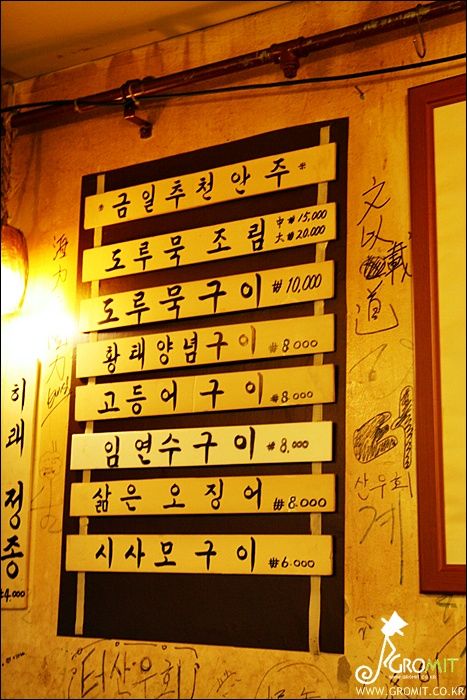 *금일추천안주*
도루묵 조림 中₩15,000
大₩20,000
도루묵구이 ₩10,000
황태양념구이 ₩8,000
고등어구이 ₩8,000
임연수구이 ₩8,000
삶은 오징어 ₩8,000
시사모구이 ₩6,000
히레 정종
₩4,000
文以載道
산우회
계
터산우회
GROMIT
WWW.GROMIT.CO.KR
WWW.GROMIT.CO.KR